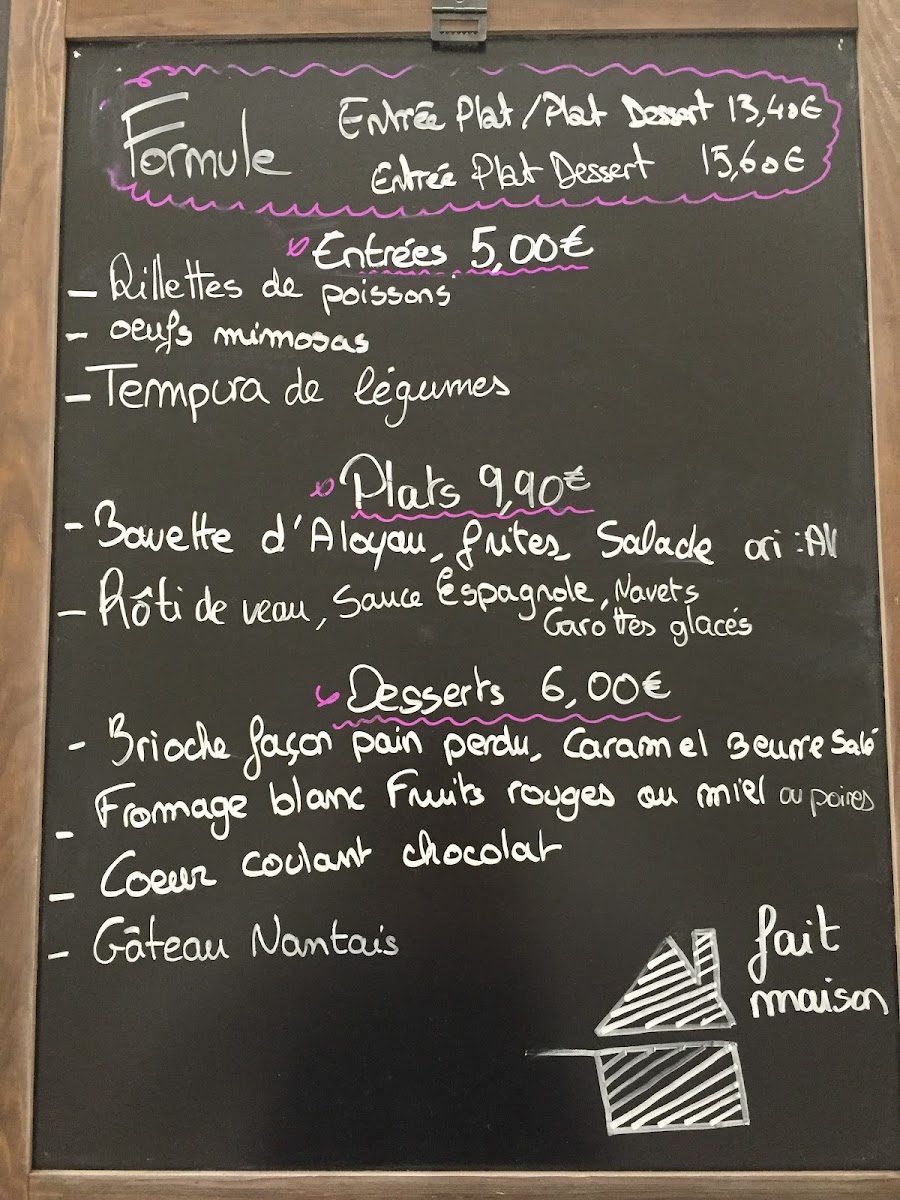 Formule Entrée Plat / Plat Dessert 13,40€
Entrée Plat Dessert 15,60€
Entrées 5,00€
- Rillettes de poissons
- oeufs mimosas
- Tempura de légumes
Plats 9,90€
- Bavette d'Aloyau, frites, Salade ori : All
- Rôti de veau, Sauce Espagnole, Navets
Carottes glacés
Desserts 6,00€
- Brioche façon pain perdu, Caramel Beurre Salé
- Fromage blanc Fruits rouges ou miel ou poires
- Coeur coulant chocolat
- Gâteau Nantais
fait
maison